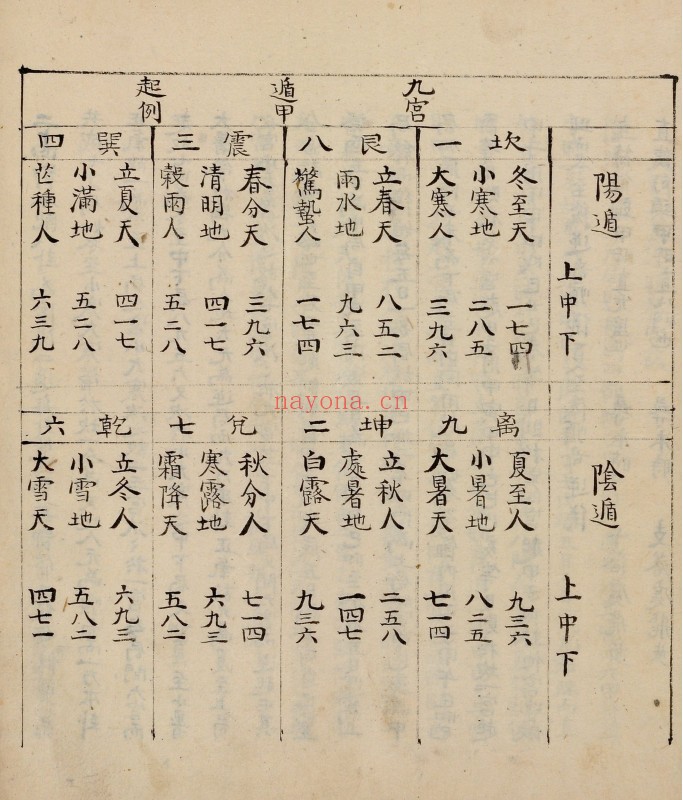 九宮
遁甲
起例
陽遁 上中下
坎一
冬至天 一七四
小寒地 二八五
大寒人 三九六
艮八
立春天 八五二
雨水地 九六三
驚蟄人 一七四
震三
春分天 三九六
清明地 四一七
穀雨人 五二八
巽四
立夏天 四一七
小滿地 五二八
芒種人 六三九
陰遁 上中下
離九
夏至人 九三六
小暑地 八二五
大暑天 七一四
坤二
立秋人 二五八
處暑地 一四七
白露天 九三六
兌七
秋分人 七一四
寒露地 六九三
霜降天 五八二
乾六
立冬人 六九三
小雪地 五八二
大雪天 四七一
nayona.cn